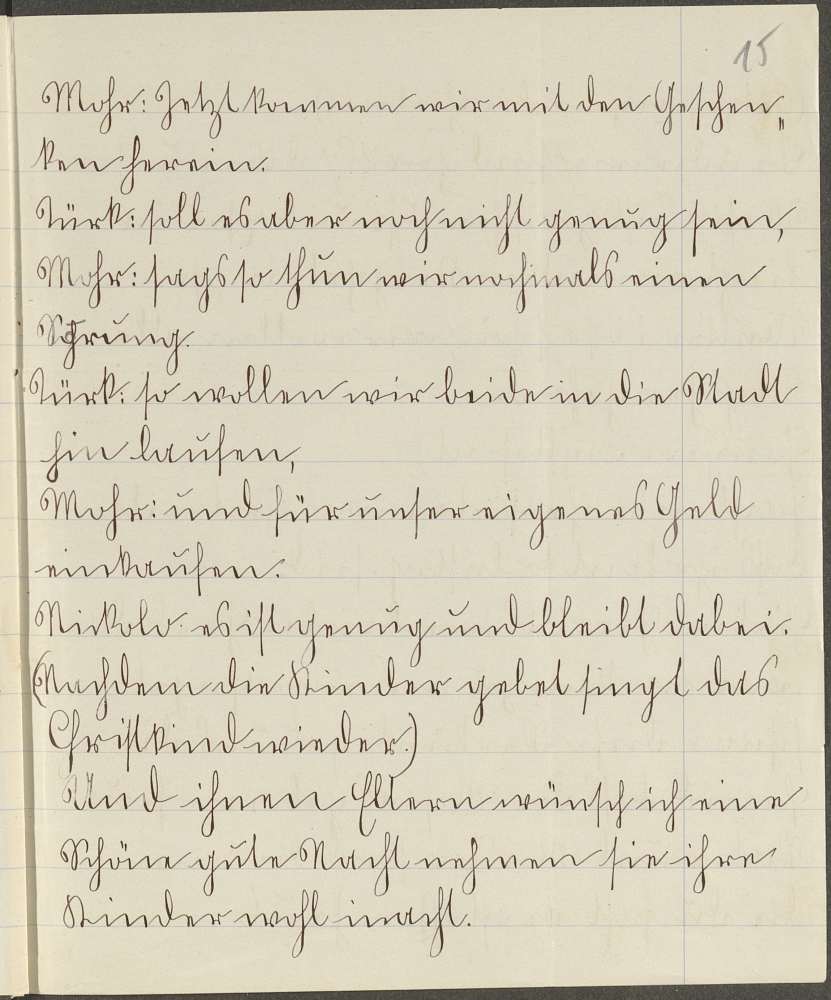 15
Mohr: Jetzt kommen wir mit den Geschen„
ken herein.
Türk: soll es aber noch nicht genug sein,
Mohr: sags so thun wir nochmals einen
Sprung.
Türk: so wollen wir beide in die Stadt
hin laufen,
Mohr: und für unser eigenes Geld
einkaufen.
Nickolo: es ist genug und bleibt dabei.
(Nachdem die Kinder gebet singt das
Christkind wieder.)
Und ihnen Eltern wünsch ich eine
Schöne gute Nacht nehmen sie ihre
Kinder wohl inacht.